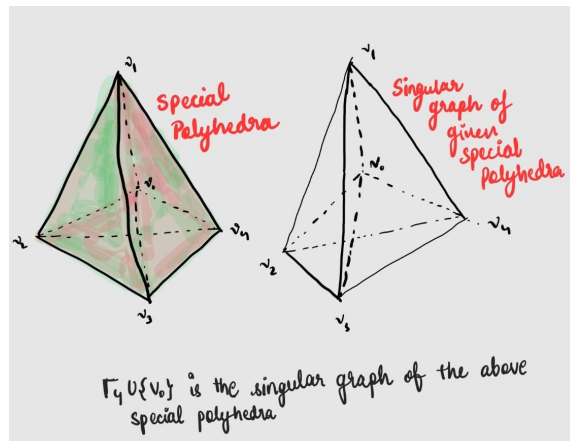 v₁
v₁
special
Polyhedra
Singular
graph of
given
special
polyhedra
v₀
v₀
v₂
v₄
v₂
v₄
v₃
v₃
Γ₄ ∪ {v₀} is the singular graph of the above
special polyhedra